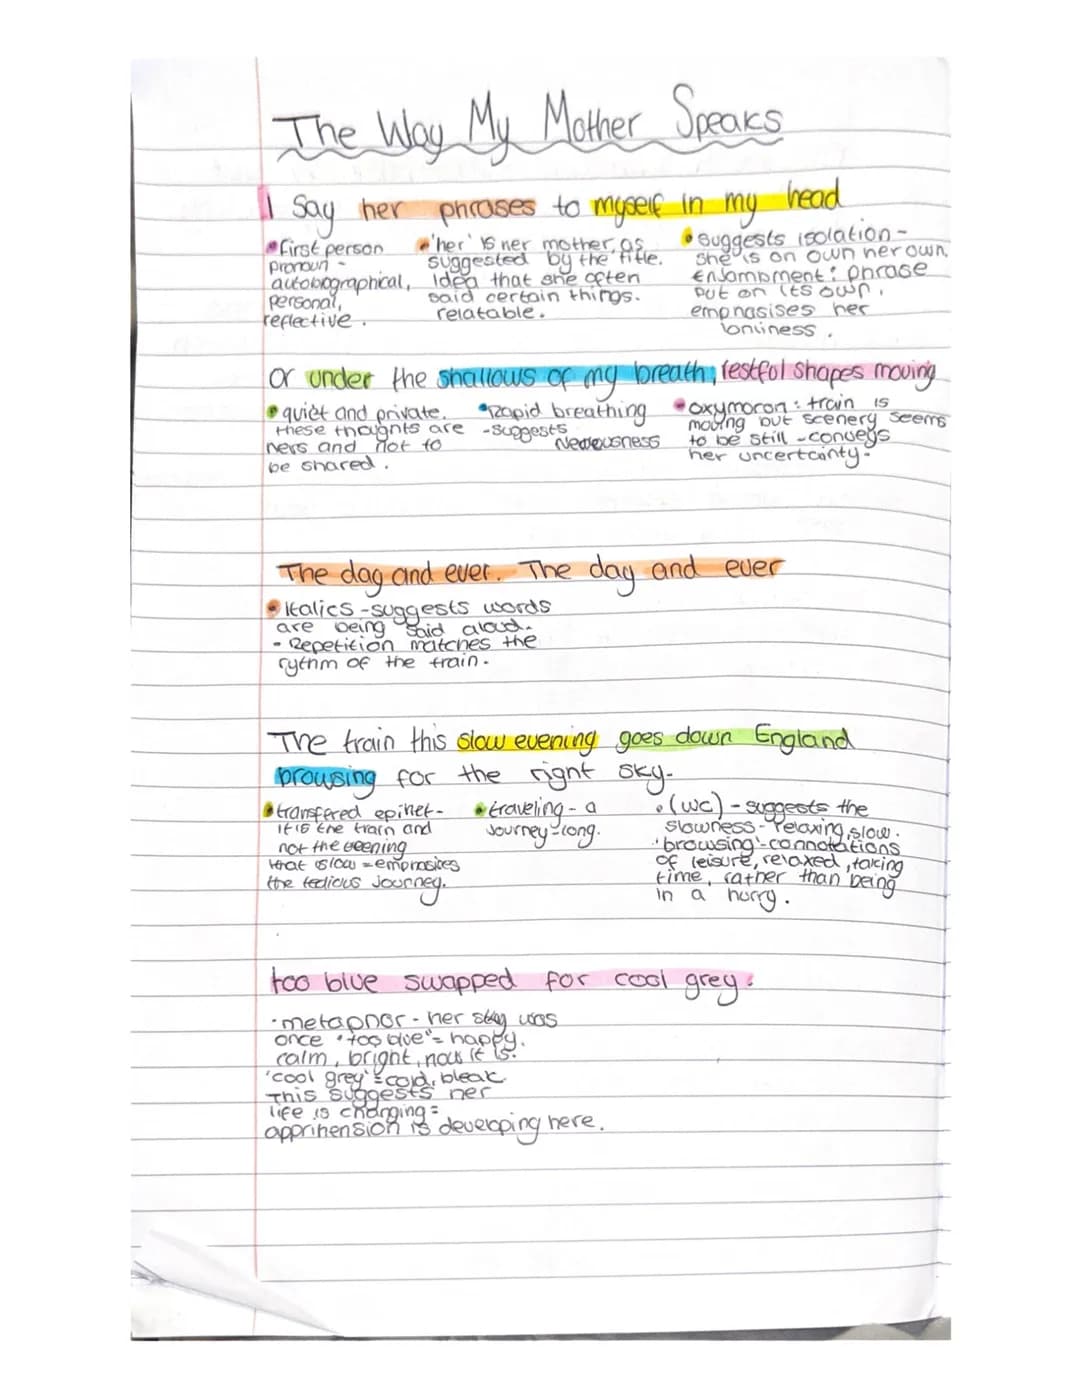 The Way My Mother Speaks
I Say her phrases to myself in my head
• first person
pronoun -
autobiographical,
personal,
reflective.
• 'her' is her mother, as
suggested by the title.
Idea that she often
said certain things.
relatable.
• suggests isolation -
she is on own her own.
Enjambment: phrase
put on its own,
emphasises her
lonliness.
Or under the shallows of my breath, restful shapes moving
• quiet and private.
these thoughts are
hers and not to
be shared.
• Rapid breathing
- suggests
Nerveousness
• oxymoron: train is
moving but scenery seems
to be still - conveys
her uncertainty.
The day and ever. The day and ever
• Italics - suggests words
are being said aloud.
- Repetition matches the
rythm of the train.
The train this slow evening goes down England
browsing for the right sky.
• transfered epithet -
it is the train and
not the evening
that is slow = emphasizes
the tedious journey.
• traveling - a
journey - long.
• (wc) - suggests the
slowness - relaxing, slow.
'browsing' - connotations
of leisure, relaxed, taking
time, rather than being
in a hurry.
too blue swapped for cool grey.
• metaphor - her sky was
once "too blue" = happy,
calm, bright, now it is.
'cool grey' = cold, bleak.
This suggests her
life is changing =
apprihension is developing here.